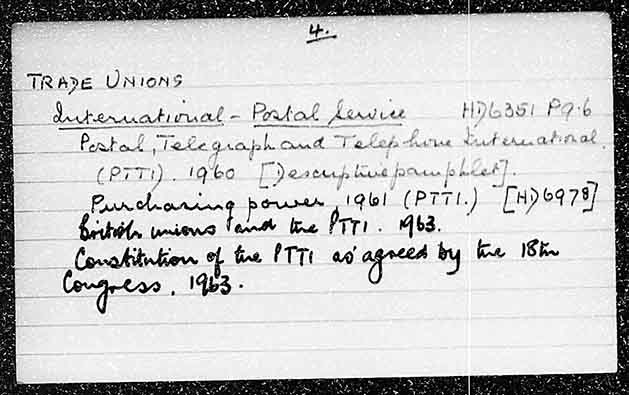 4.
TRADE UNIONS
International - Postal Service HD6351 P9.6
Postal, Telegraph and Telephone International.
(PTTI). 1960 [Descriptive pamphlet].
Purchasing power 1961 (PTTI.) [HD6978]
British unions and the PTTI. 1963.
Constitution of the PTTI as agreed by the 18th
Congress, 1963.